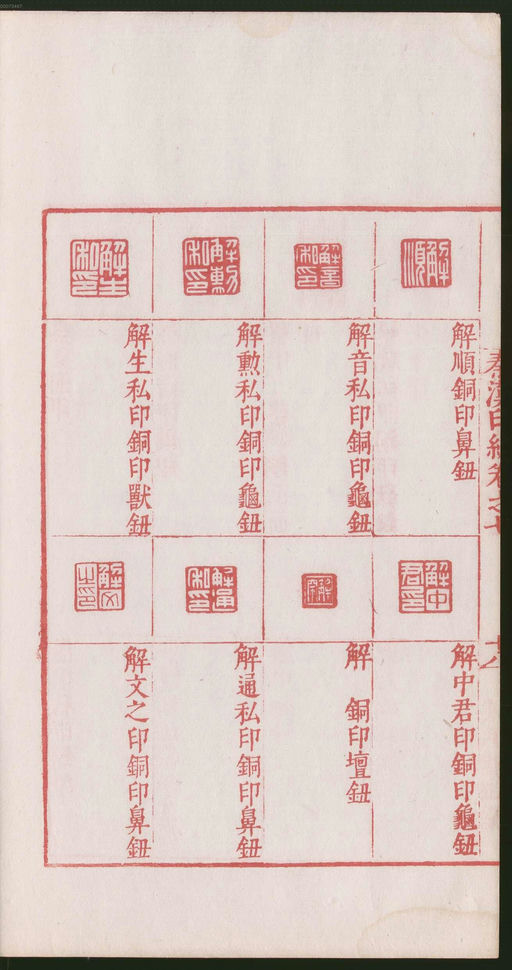 解順銅印鼻鈕
解音私印銅印龜鈕
解勲私印銅印龜鈕
解生私印銅印獸鈕
解中君印銅印龜鈕
解　銅印壇鈕
解通私印銅印鼻鈕
解文之印銅印鼻鈕